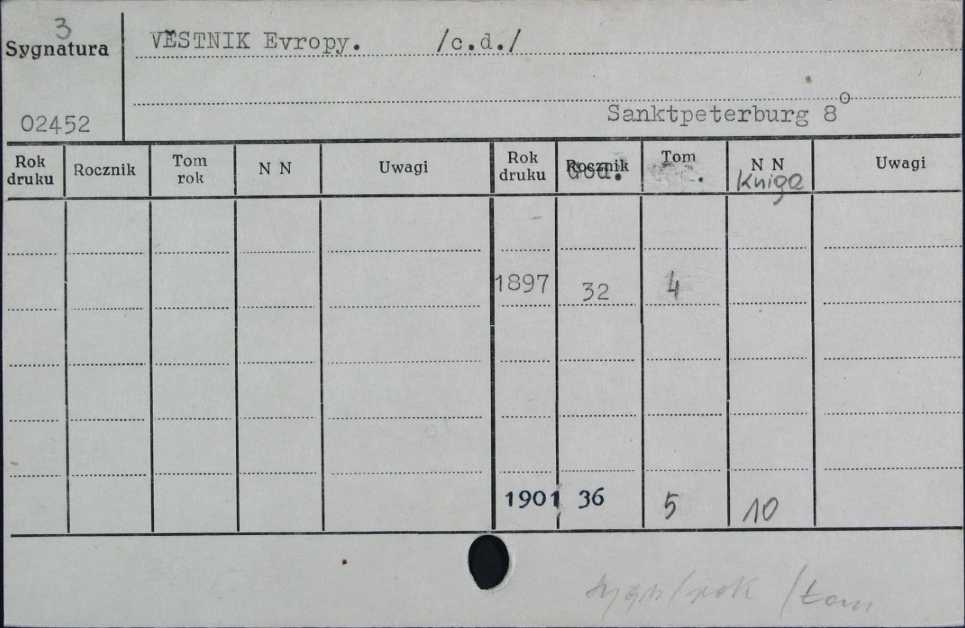 3
Sygnatura
VĚSTNIK Evropy. /c.d./
Sanktpeterburg 8°
02452
Rok druku Rocznik Tom rok N N Uwagi Rok druku Rocznik God. Tom N N Kniga Uwagi
1897 32 4
1901 36 5 10
sygn/rok /tom